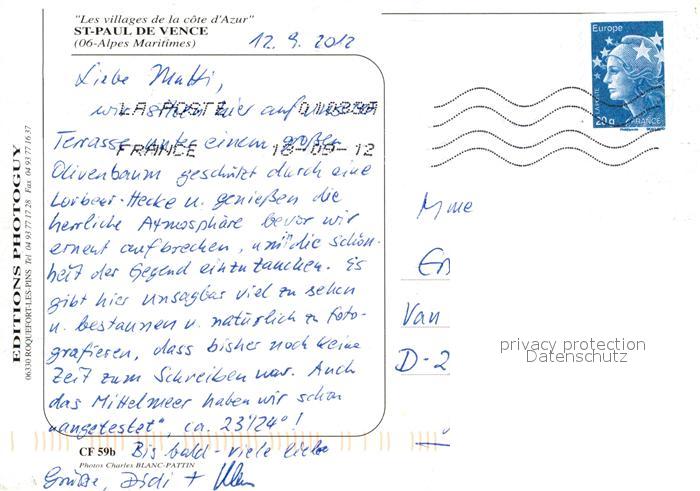 "Les villages de la côte d'Azur"
ST-PAUL DE VENCE
(06-Alpes Maritimes)
12. 9. 2012
Liebe Mutti,
wir sitzen hier auf unserer
Terrasse unter einem großen
Olivenbaum geschützt durch eine
Lorbeer-Hecke u. genießen die
herrliche Atmosphäre bevor wir
erneut aufbrechen, um in die Schön-
heit der Gegend einzutauchen. Es
gibt hier unsagbar viel zu sehen
u. bestaunen u. natürlich zu foto-
grafieren, dass bisher noch keine
Zeit zum Schreiben war. Auch
das Mittelmeer haben wir schon
"angetestet", ca. 23°/24°!
Bis bald - viele liebe
Grüße, Didi +
LA POSTE
FRANCE 18-09-12
Europe
LA POSTE
20g FRANCE
Mme
Van
D-2
privacy protection
Datenschutz
EDITIONS PHOTOGUY
06330 ROQUEFORT-LES-PINS Tél 04 93 77 17 28 Fax 04 93 77 16 37
CF 59b
Photos Charles BLANC-PATTIN